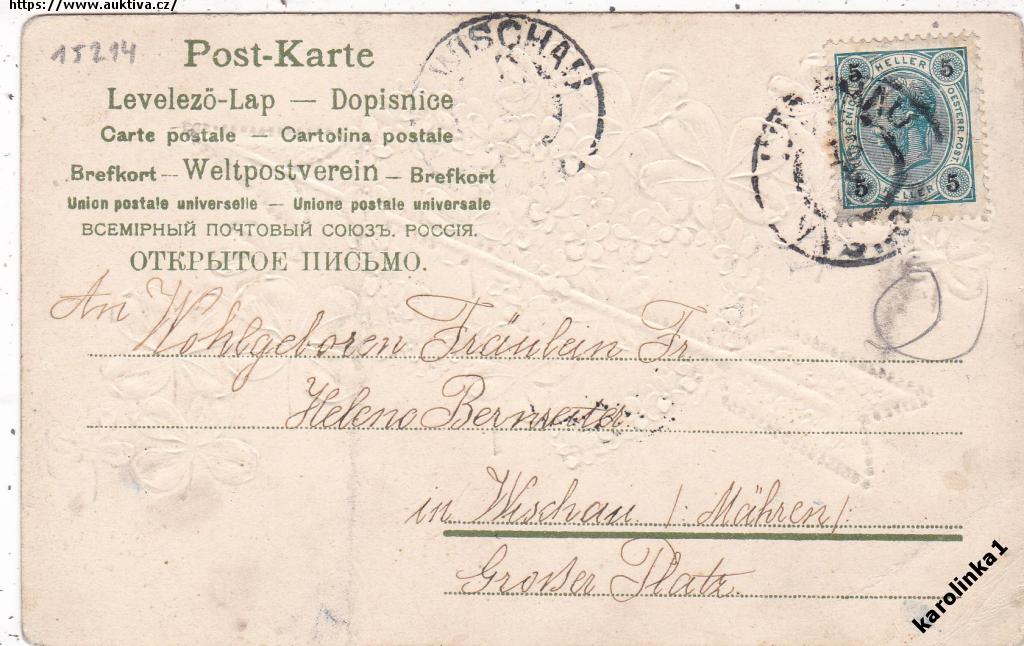 https://www.auktiva.cz/
15294
Post-Karte
Levelezö-Lap — Dopisnice
Carte postale — Cartolina postale
Brefkort — Weltpostverein — Brefkort
Union postale universelle — Unione postale universale
ВСЕМІРНЫЙ ПОЧТОВЫЙ СОЮЗЪ. РОССІЯ.
ОТКРЫТОЕ ПИСЬМО.
WISCHAU
5 HELLER 5
OESTERR. POST.
5 HELLER 5
An Wohlgeboren Fräulein Fr.
Helene Bernreiter
in Wischau /: Mähren /:
Großer Platz.
karolinka1